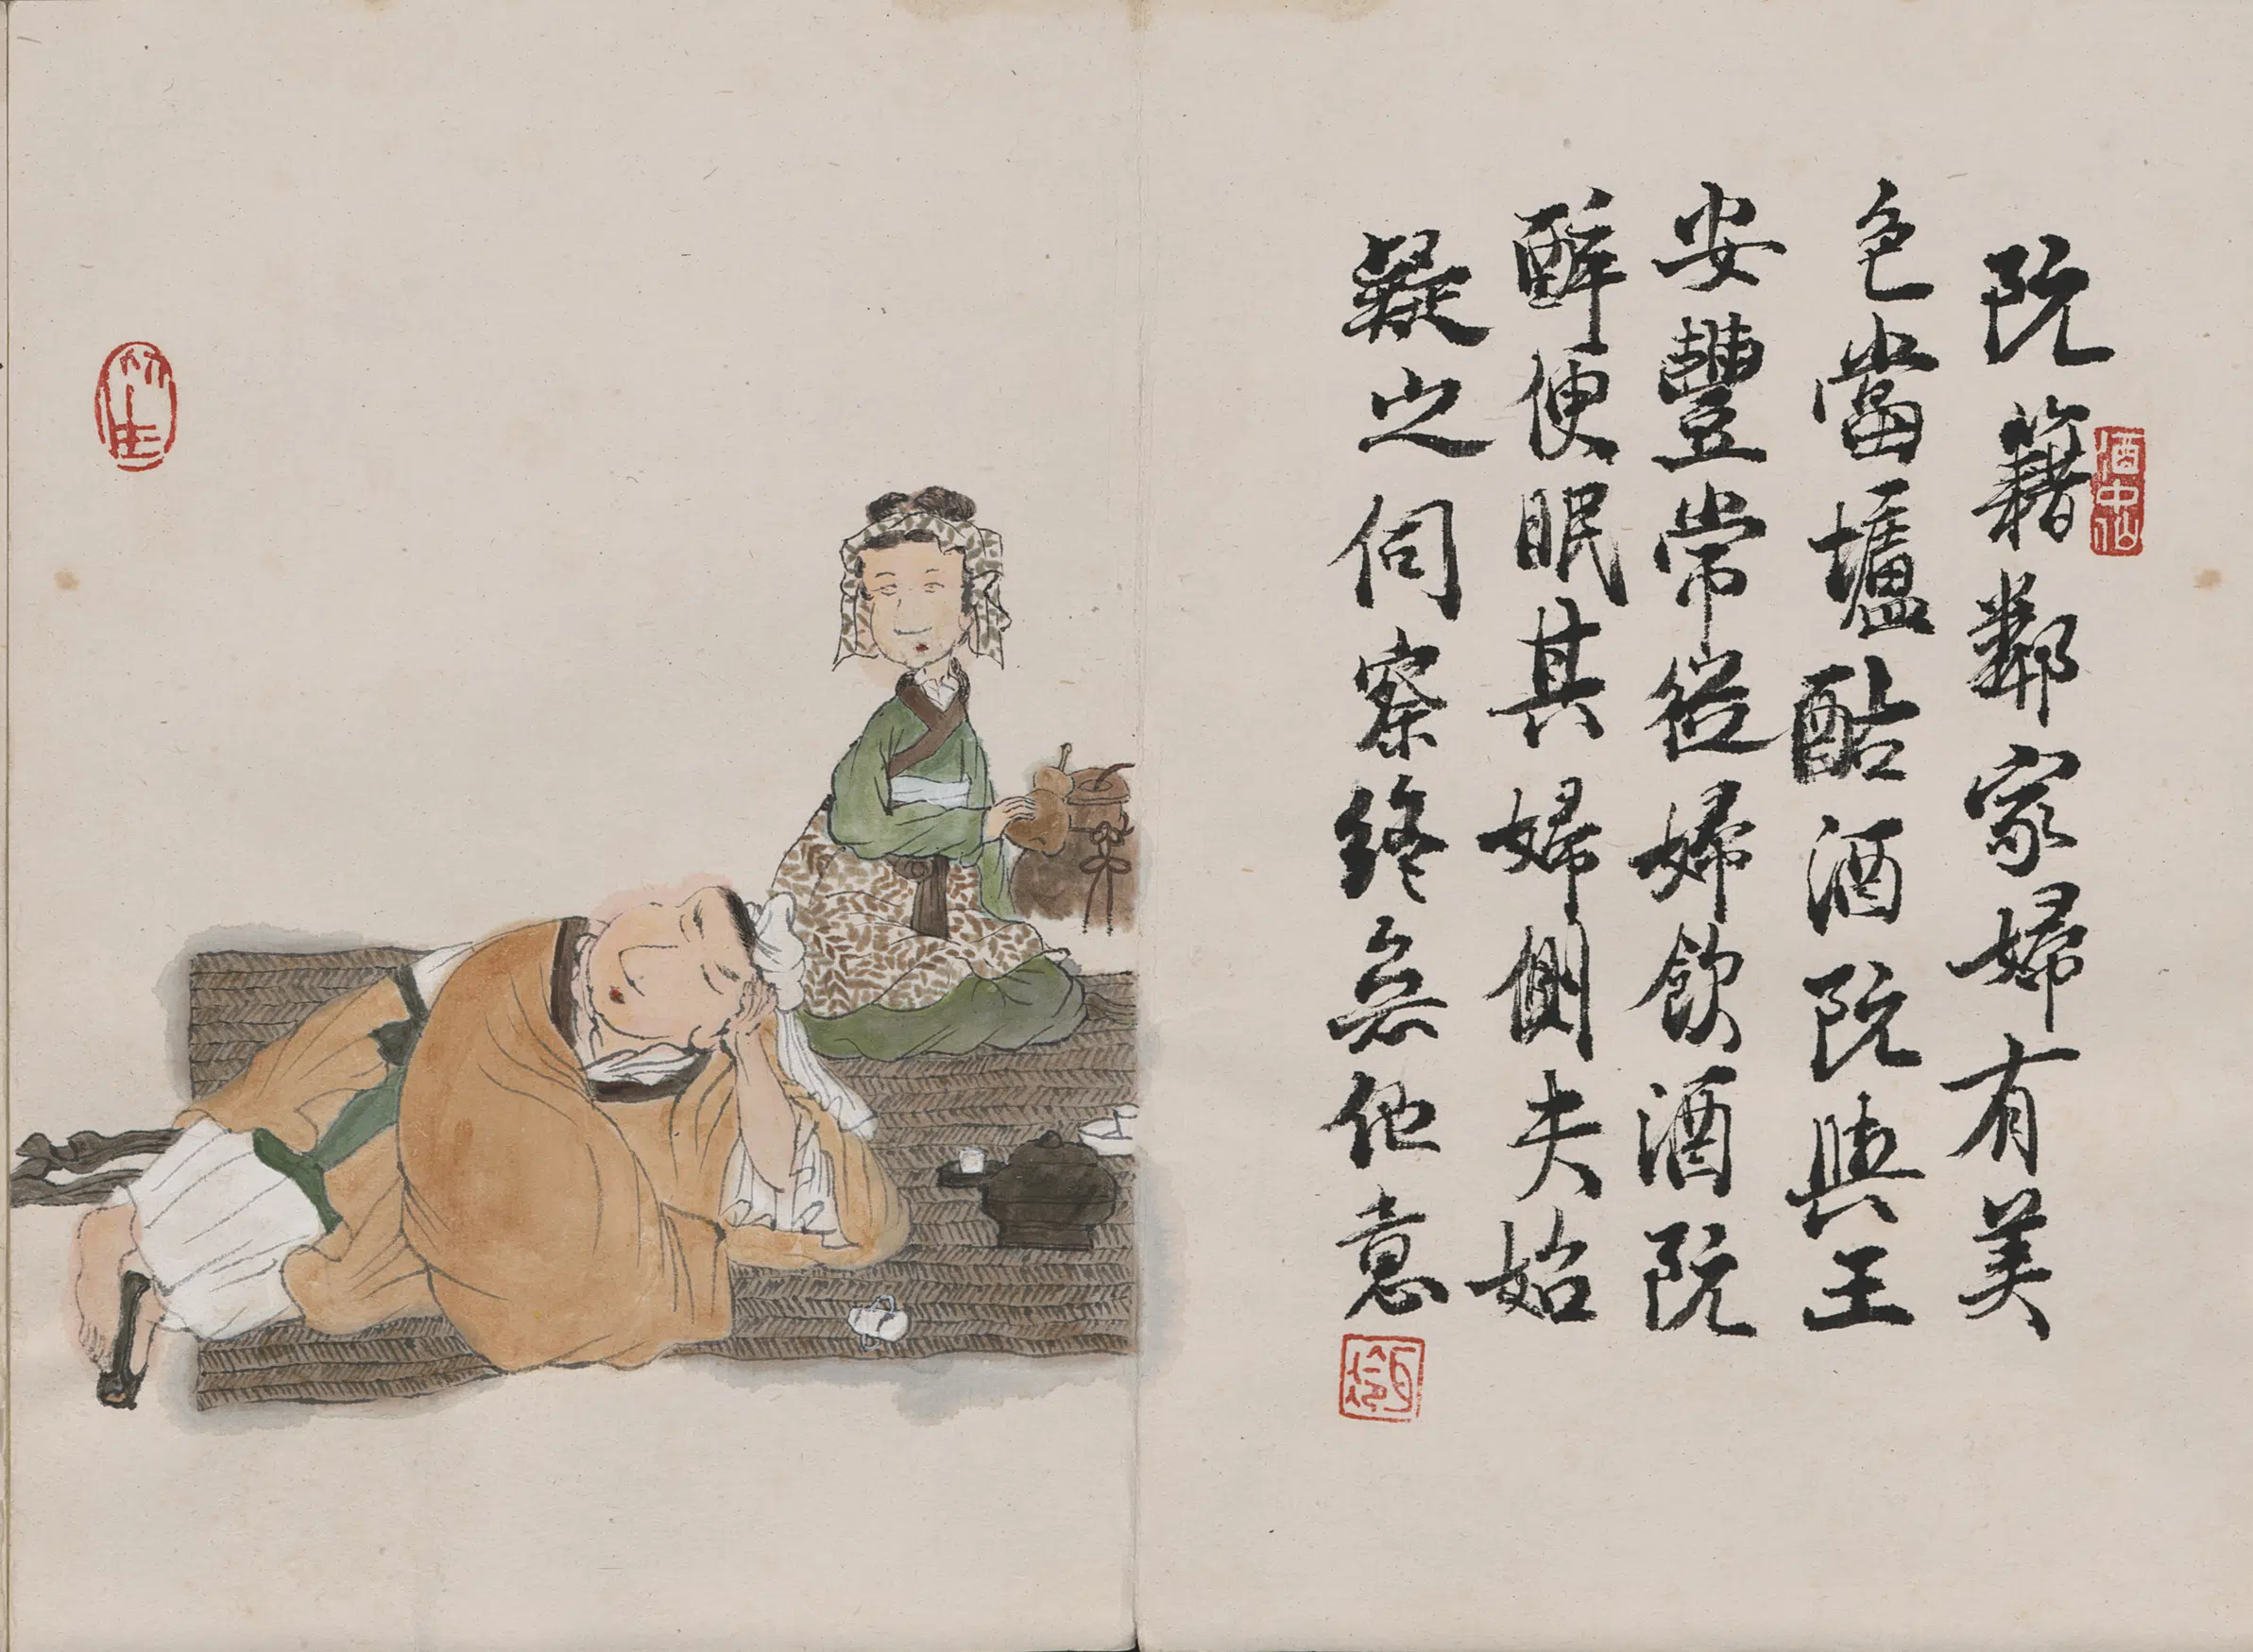 阮籍鄰家婦有美
色當壚酤酒阮與王
安豐常從婦飲酒阮
醉便眠其婦側夫始
疑之伺察終無他意
酒中仙